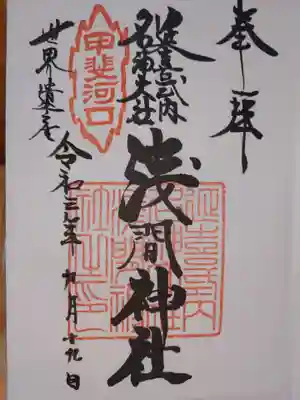 奉拝
延喜式内
名神大社
淺間神社
甲斐河口
世界遺産
令和三年九月十九日